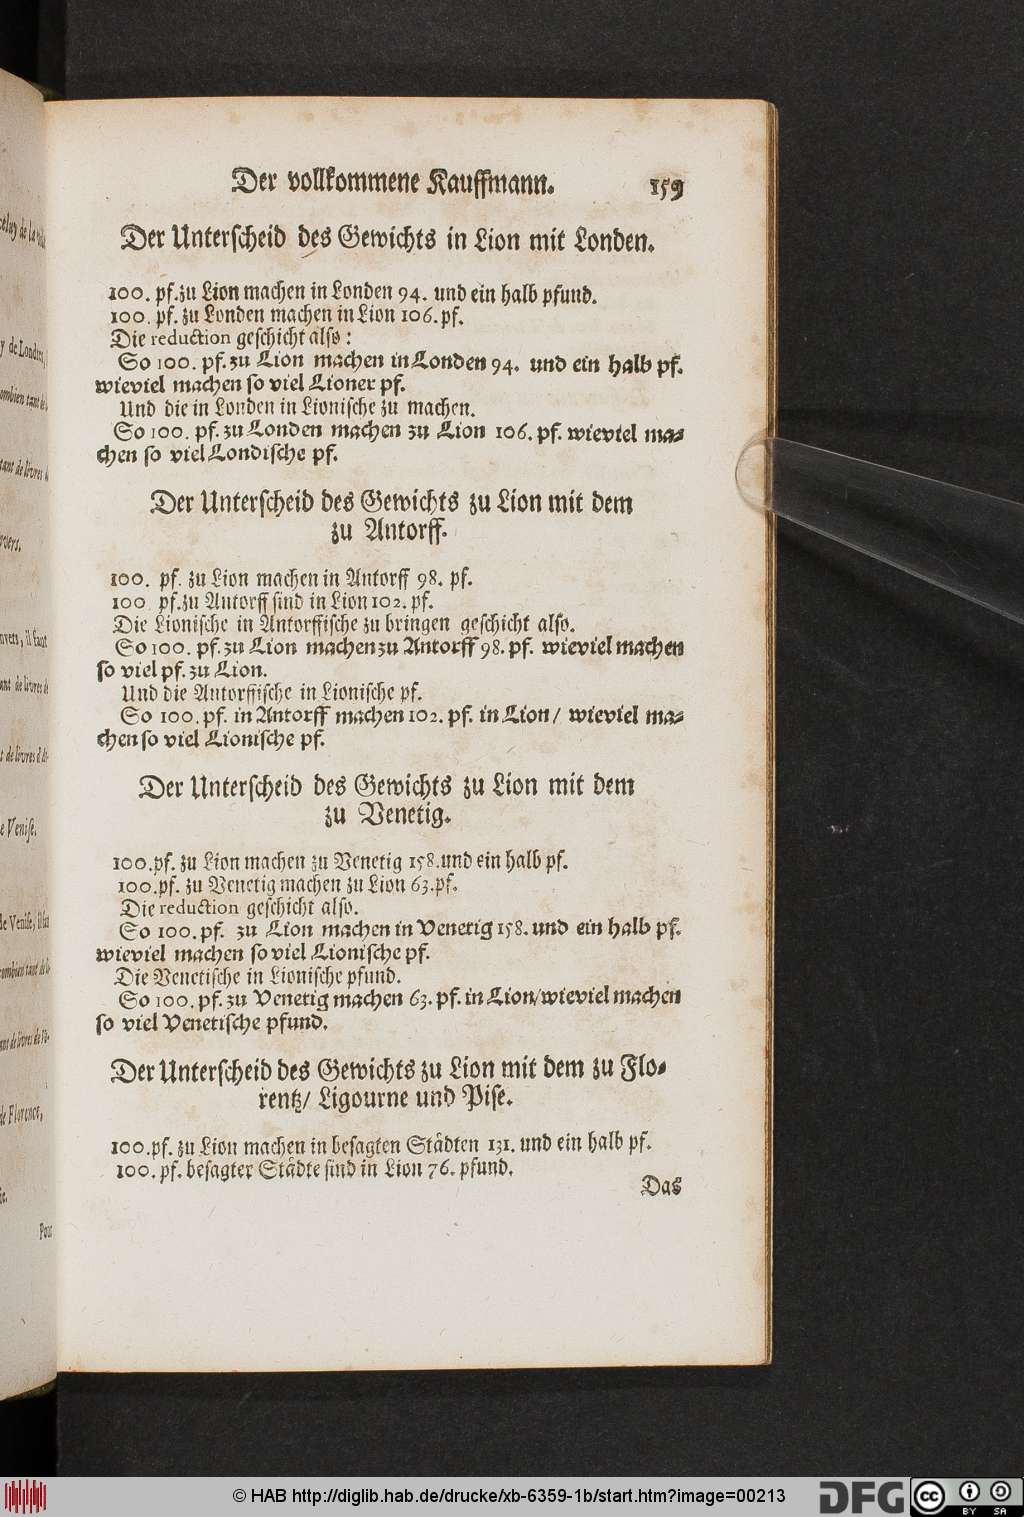 Der vollkommene Kauffmann. 159
Der Unterscheid des Gewichts in Lion mit Londen.
100. pf. zu Lion machen in Londen 94. und ein halb pfund.
100. pf. zu Londen machen in Lion 106. pf.
Die reduction geschicht also:
So 100. pf. zu Lion machen in Londen 94. und ein halb pf.
wieviel machen so viel Lioner pf.
Und die in Londen in Lionische zu machen.
So 100. pf. zu Londen machen zu Lion 106. pf. wieviel ma⸗
chen so viel Londische pf.
Der Unterscheid des Gewichts zu Lion mit dem
zu Antorff.
100. pf. zu Lion machen in Antorff 98. pf.
100 pf. zu Antorff sind in Lion 102. pf.
Die Lionische in Antorffische zu bringen geschicht also.
So 100. pf. zu Lion machen zu Antorff 98. pf. wieviel machen
so viel pf. zu Lion.
Und die Antorffische in Lionische pf.
So 100. pf. in Antorff machen 102. pf. in Lion / wieviel ma⸗
chen so viel Lionische pf.
Der Unterscheid des Gewichts zu Lion mit dem
zu Venetig.
100. pf. zu Lion machen zu Venetig 158. und ein halb pf.
100. pf. zu Venetig machen zu Lion 63. pf.
Die reduction geschicht also.
So 100. pf. zu Lion machen in Venetig 158. und ein halb pf.
wieviel machen so viel Lionische pf.
Die Venetische in Lionische pfund.
So 100. pf. zu Venetig machen 63. pf. in Lion/ wieviel machen
so viel Venetische pfund.
Der Unterscheid des Gewichts zu Lion mit dem zu Flo⸗
rentz/ Ligourne und Pise.
100. pf. zu Lion machen in besagten Städten 131. und ein halb pf.
100. pf. besagter Städte sind in Lion 76. pfund.
Das
de Londres,
tant de livres
il faut
de Venise.
de Venise,
de Florence,
Pour
© HAB http://diglib.hab.de/drucke/xb-6359-1b/start.htm?image=00213
DFG
cc BY SA